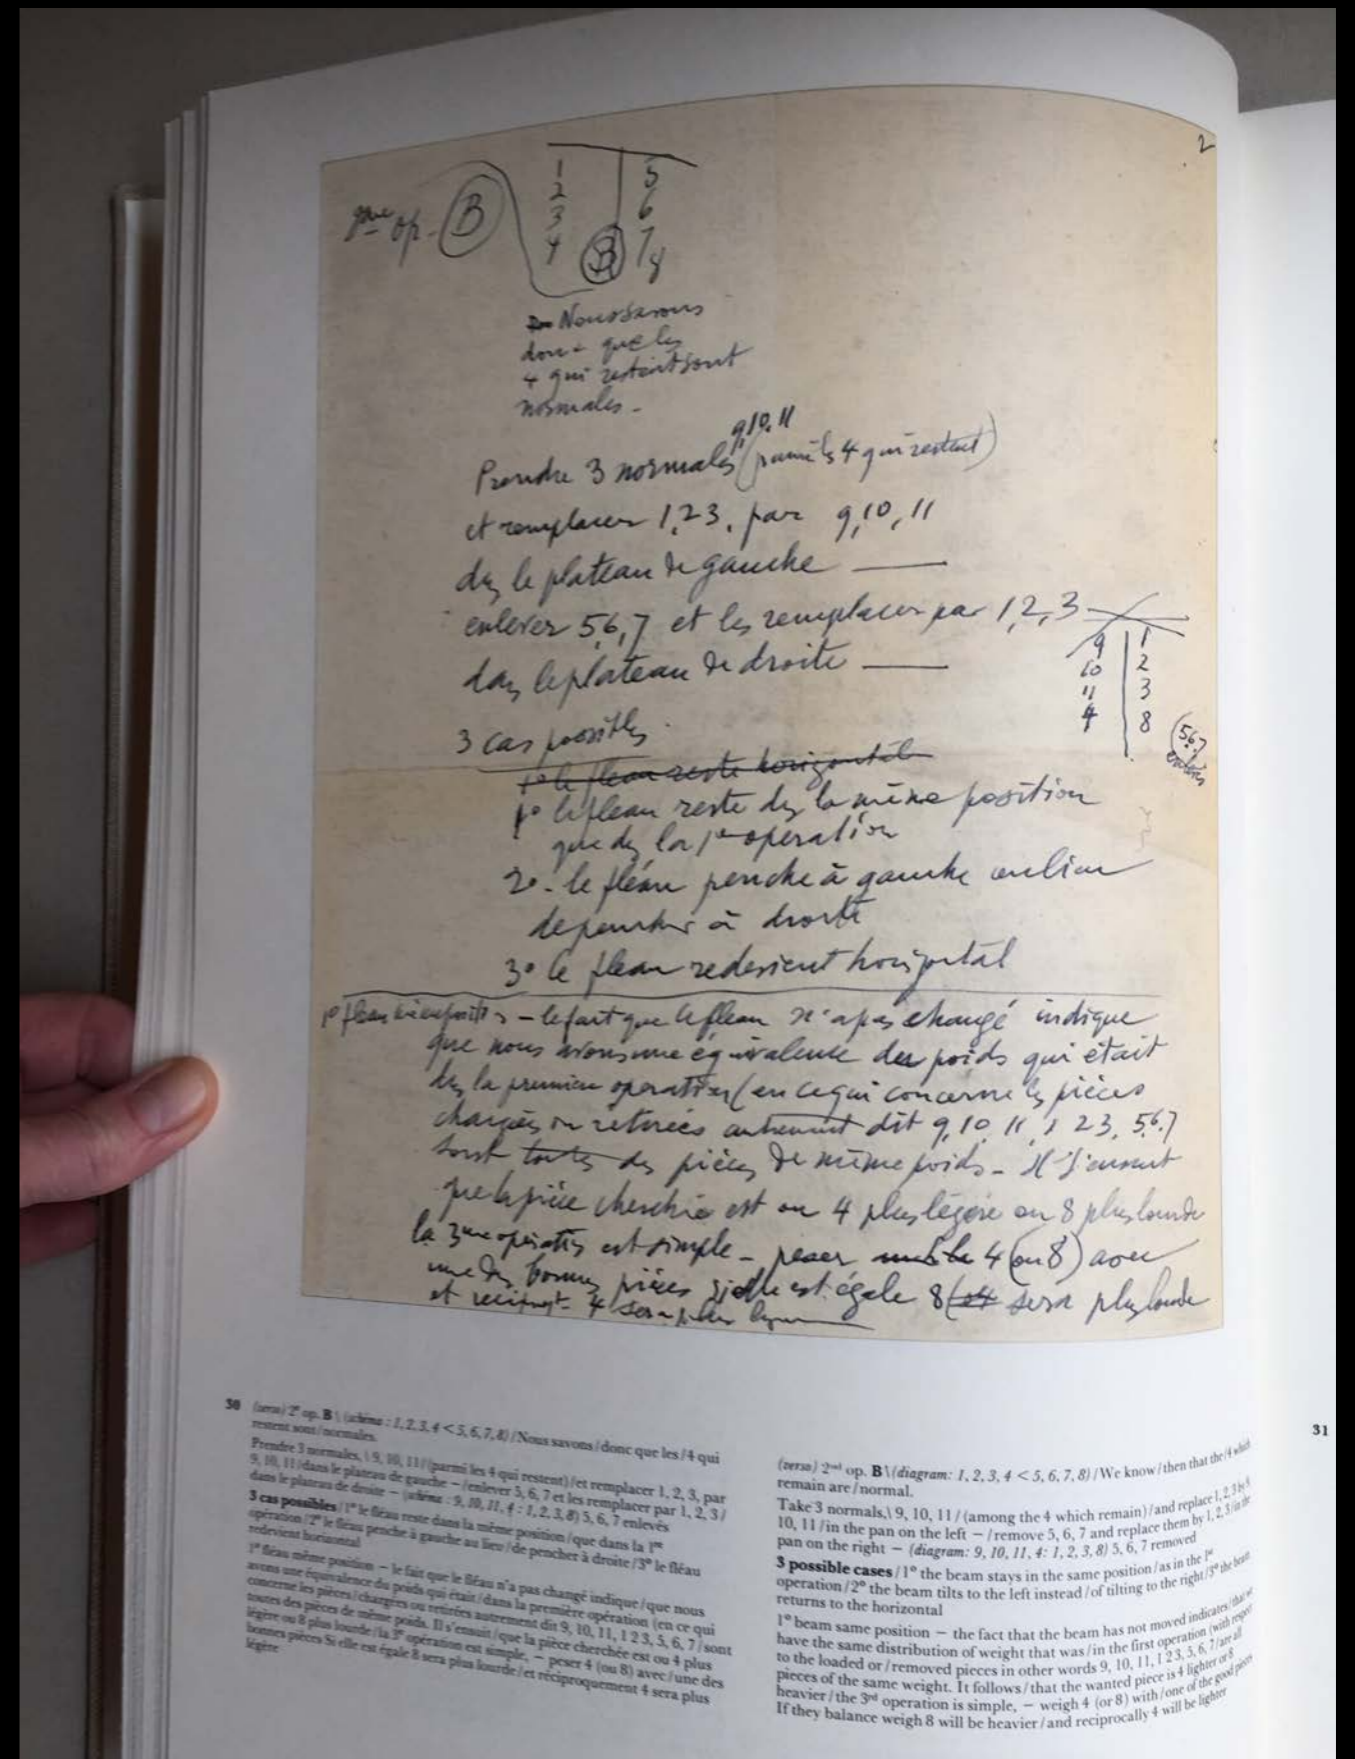 2
2me op. B
1 5
2 6
3 7
4 B 8
Nous savons
donc que les
4 qui restent sont
normales -
9, 10, 11
Prendre 3 normales (parmi les 4 qui restent)
et remplacer 1, 2 3, par 9, 10, 11
ds le plateau de gauche —
enlever 5, 6, 7 et les remplacer par 1, 2, 3
dans le plateau de droite —
9 1
10 2
11 3
4 8
(5 6 7
enlevés
3 cas possibles
1º le fleau reste horizontal
1º le fleau reste ds la même position
que ds la 1re operation
2º - le fléau penche à gauche au lieu
de pencher à droite
3º le fleau redevient horizontal
1º fleau même position - le fait que le fleau n'a pas changé indique
que nous avons une équivalence du poids qui était
ds la premiere operation (en ce qui concerne les pièces
chargées ou retirées autrement dit 9, 10, 11, 1 2 3, 5, 6, 7
sont toutes des pièces de même poids - Il s'ensuit
que la pièce cherchée est ou 4 plus légère ou 8 plus lourde
la 3me operation est simple - peser 4 (ou 8) avec
une des bonnes pièces si elle est égale 8 sera plus lourde
et recipqt - 4 sera plus legere
30 (verso) 2e op. B \ (schéma : 1, 2, 3, 4 < 5, 6, 7, 8) / Nous savons / donc que les / 4 qui
restent sont / normales.
Prendre 3 normales, \ 9, 10, 11 / (parmi les 4 qui restent) / et remplacer 1, 2, 3, par
9, 10, 11 / dans le plateau de gauche – / enlever 5, 6, 7 et les remplacer par 1, 2, 3 /
dans le plateau de droite – (schéma : 9, 10, 11, 4 : 1, 2, 3, 8) 5, 6, 7 enlevés
3 cas possibles / 1º le fléau reste dans la même position / que dans la 1re
opération / 2º le fléau penche à gauche au lieu / de pencher à droite / 3º le fléau
redevient horizontal
1º fléau même position – le fait que le fléau n'a pas changé indique / que nous
avons une équivalence du poids qui était / dans la première opération (en ce qui
concerne les pièces / chargées ou retirées autrement dit 9, 10, 11, 1 2 3, 5, 6, 7 / sont
toutes des pièces de même poids. Il s'ensuit / que la pièce cherchée est ou 4 plus
légère ou 8 plus lourde / la 3e opération est simple, – peser 4 (ou 8) avec / une des
bonnes pièces Si elle est égale 8 sera plus lourde / et réciproquement 4 sera plus
légère
(verso) 2nd op. B \ (diagram: 1, 2, 3, 4 < 5, 6, 7, 8) / We know / then that the / 4 which
remain are / normal.
Take 3 normals, \ 9, 10, 11 / (among the 4 which remain) / and replace 1, 2, 3 by 9,
10, 11 / in the pan on the left – / remove 5, 6, 7 and replace them by 1, 2, 3 / in the
pan on the right – (diagram: 9, 10, 11, 4: 1, 2, 3, 8) 5, 6, 7 removed
3 possible cases / 1º the beam stays in the same position / as in the 1st
operation / 2º the beam tilts to the left instead / of tilting to the right / 3º the beam
returns to the horizontal
1º beam same position – the fact that the beam has not moved indicates / that we
have the same distribution of weight that was / in the first operation (with respect
to the loaded or / removed pieces in other words 9, 10, 11, 1 2 3, 5, 6, 7 / are all
pieces of the same weight. It follows / that the wanted piece is 4 lighter or 8
heavier / the 3rd operation is simple, – weigh 4 (or 8) with / one of the good pieces
If they balance weigh 8 will be heavier / and reciprocally 4 will be lighter
31